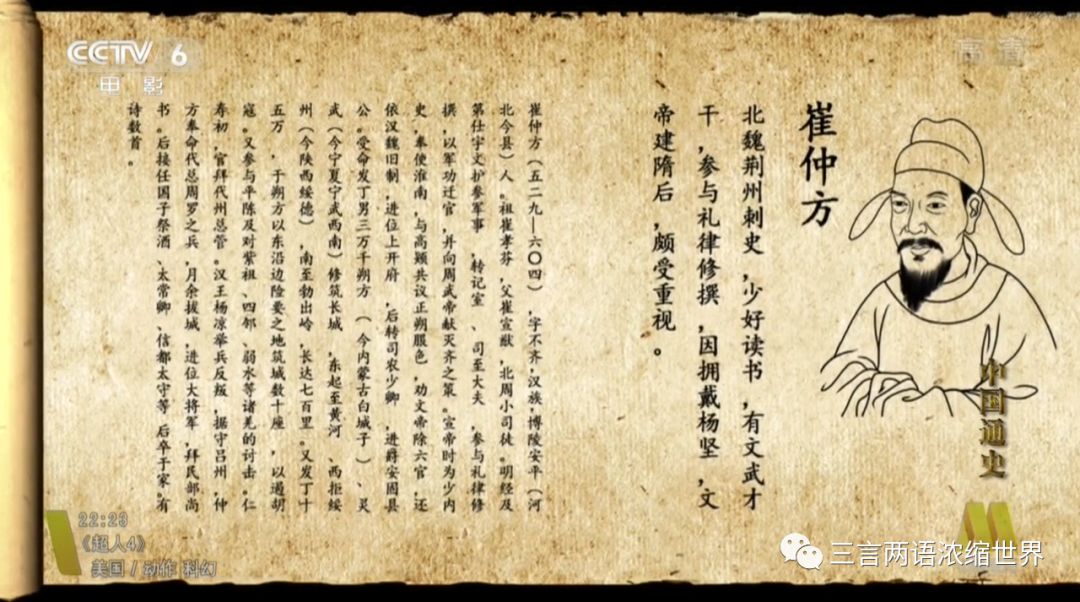 CCTV 6
电影
高清
崔仲方
北魏荆州刺史，少好读书，有文武才
干，参与礼律修撰，因拥戴杨坚，文
帝建隋后，颇受重视。
崔仲方（五二九—六〇四），字不齐，汉族，博陵安平（河
北今县）人。祖崔孝芬，父崔宣猷，北周小司徒。明经及
第仕宇文护参军事，转记室、司至大夫，参与礼律修
撰，以军功迁官，并向周武帝献灭齐之策。宣帝时为少内
史，奉使淮南，与高颎共议正朔服色，劝文帝除六官，还
依汉魏旧制，进位上开府，后转司农少卿，进爵安固县
公。受命发丁男三万千朔方（今内蒙古白城子）、灵
武（今宁夏宁武西南）修筑长城，东起至黄河、西拒绥
州（今陕西绥德），南至勃出岭，长达七百里。又发丁十
五万，于朔方以东沿边险要之地筑城数十座，以遏胡
寇。又参与平陈及对紫祖、四邻、弱水等诸羌的讨击。仁
寿初，官拜代州总管。汉王杨凉举兵反叛，据守吕州，仲
方奉命代总周罗之兵，月余拔城，进位大将军，拜民部尚
书。后接任国子祭酒、太常卿、信都太守等，后卒于家。有
诗数首。
中国通史
22:23
《超人4》
美国 / 动作 科幻
三言两语浓缩世界